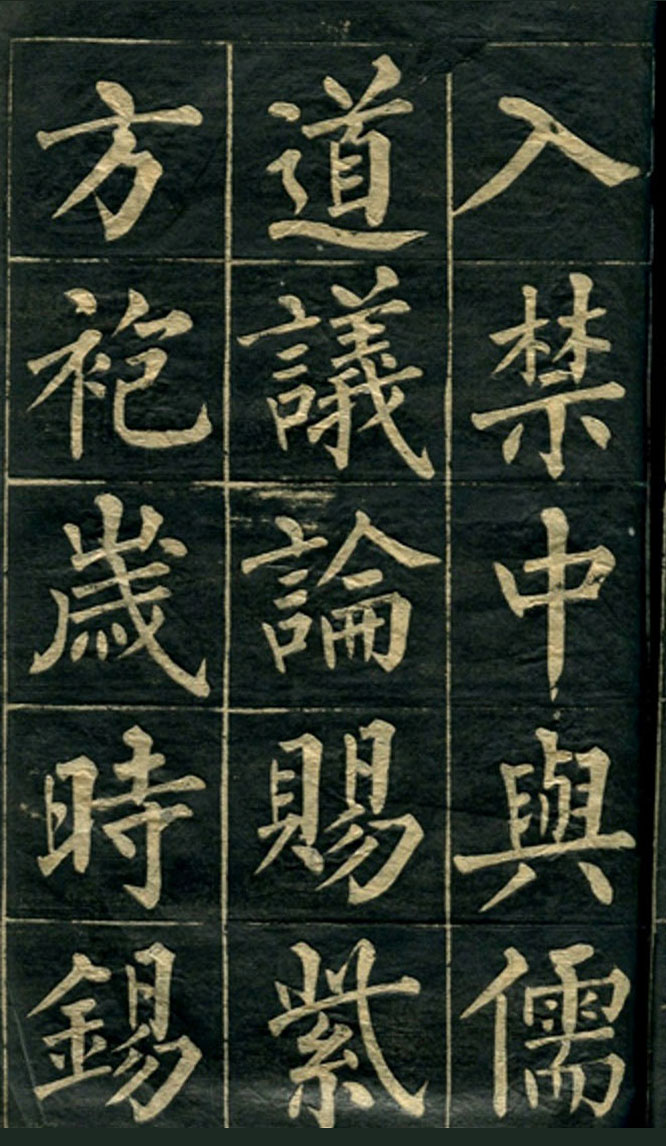 入禁中與儒
道議論賜紫
方袍歲時錫